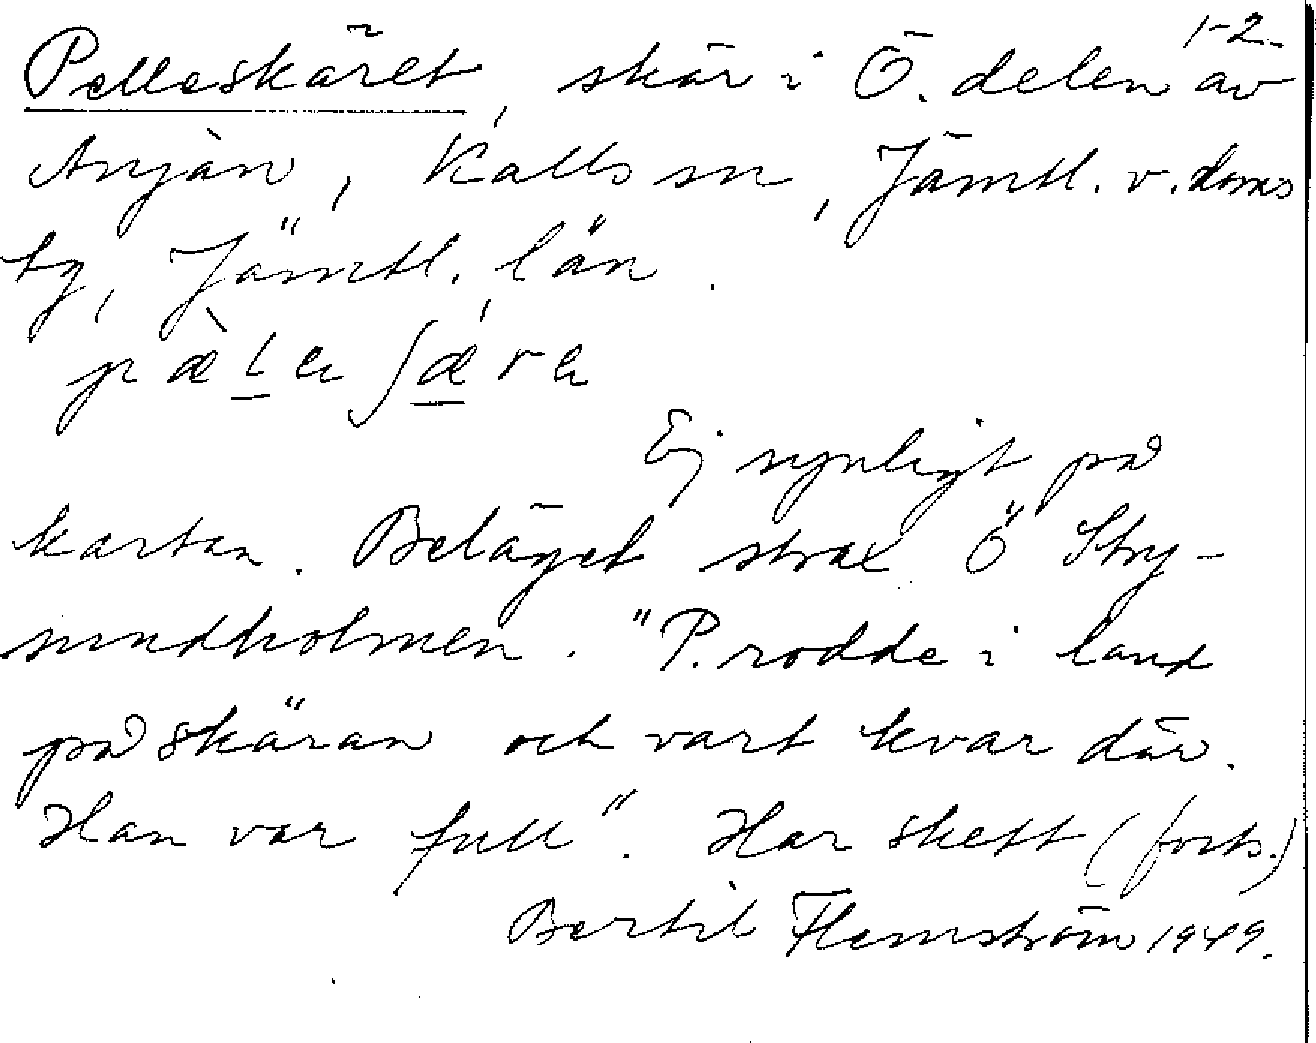 1-2
Pelleskäret, skär i Ö. delen av
Anjàn, Kalls sn, Jämtl. v. doms
bg, Jämtl. län.
pæ̀l̲a ʃǽ̲ra
Ej synligt på
kartan. Beläget strax Ö Stry-
sundholmen. "P. rodde i land
på skäran och vart kvar där.
Han var full". Har skett (forts.)
Bertil Flemström 1949.